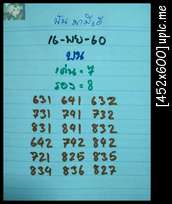 16-พย-60
บน
เด่น = 7
รอง = 8
631 691 632
731 791 732
831 891 832
642 792 892
721 825 835
839 836 827
[452x600] upic.me